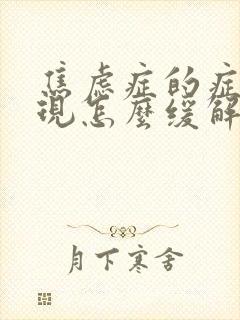 焦虑症的症
现怎麼缓解
月下寒舍